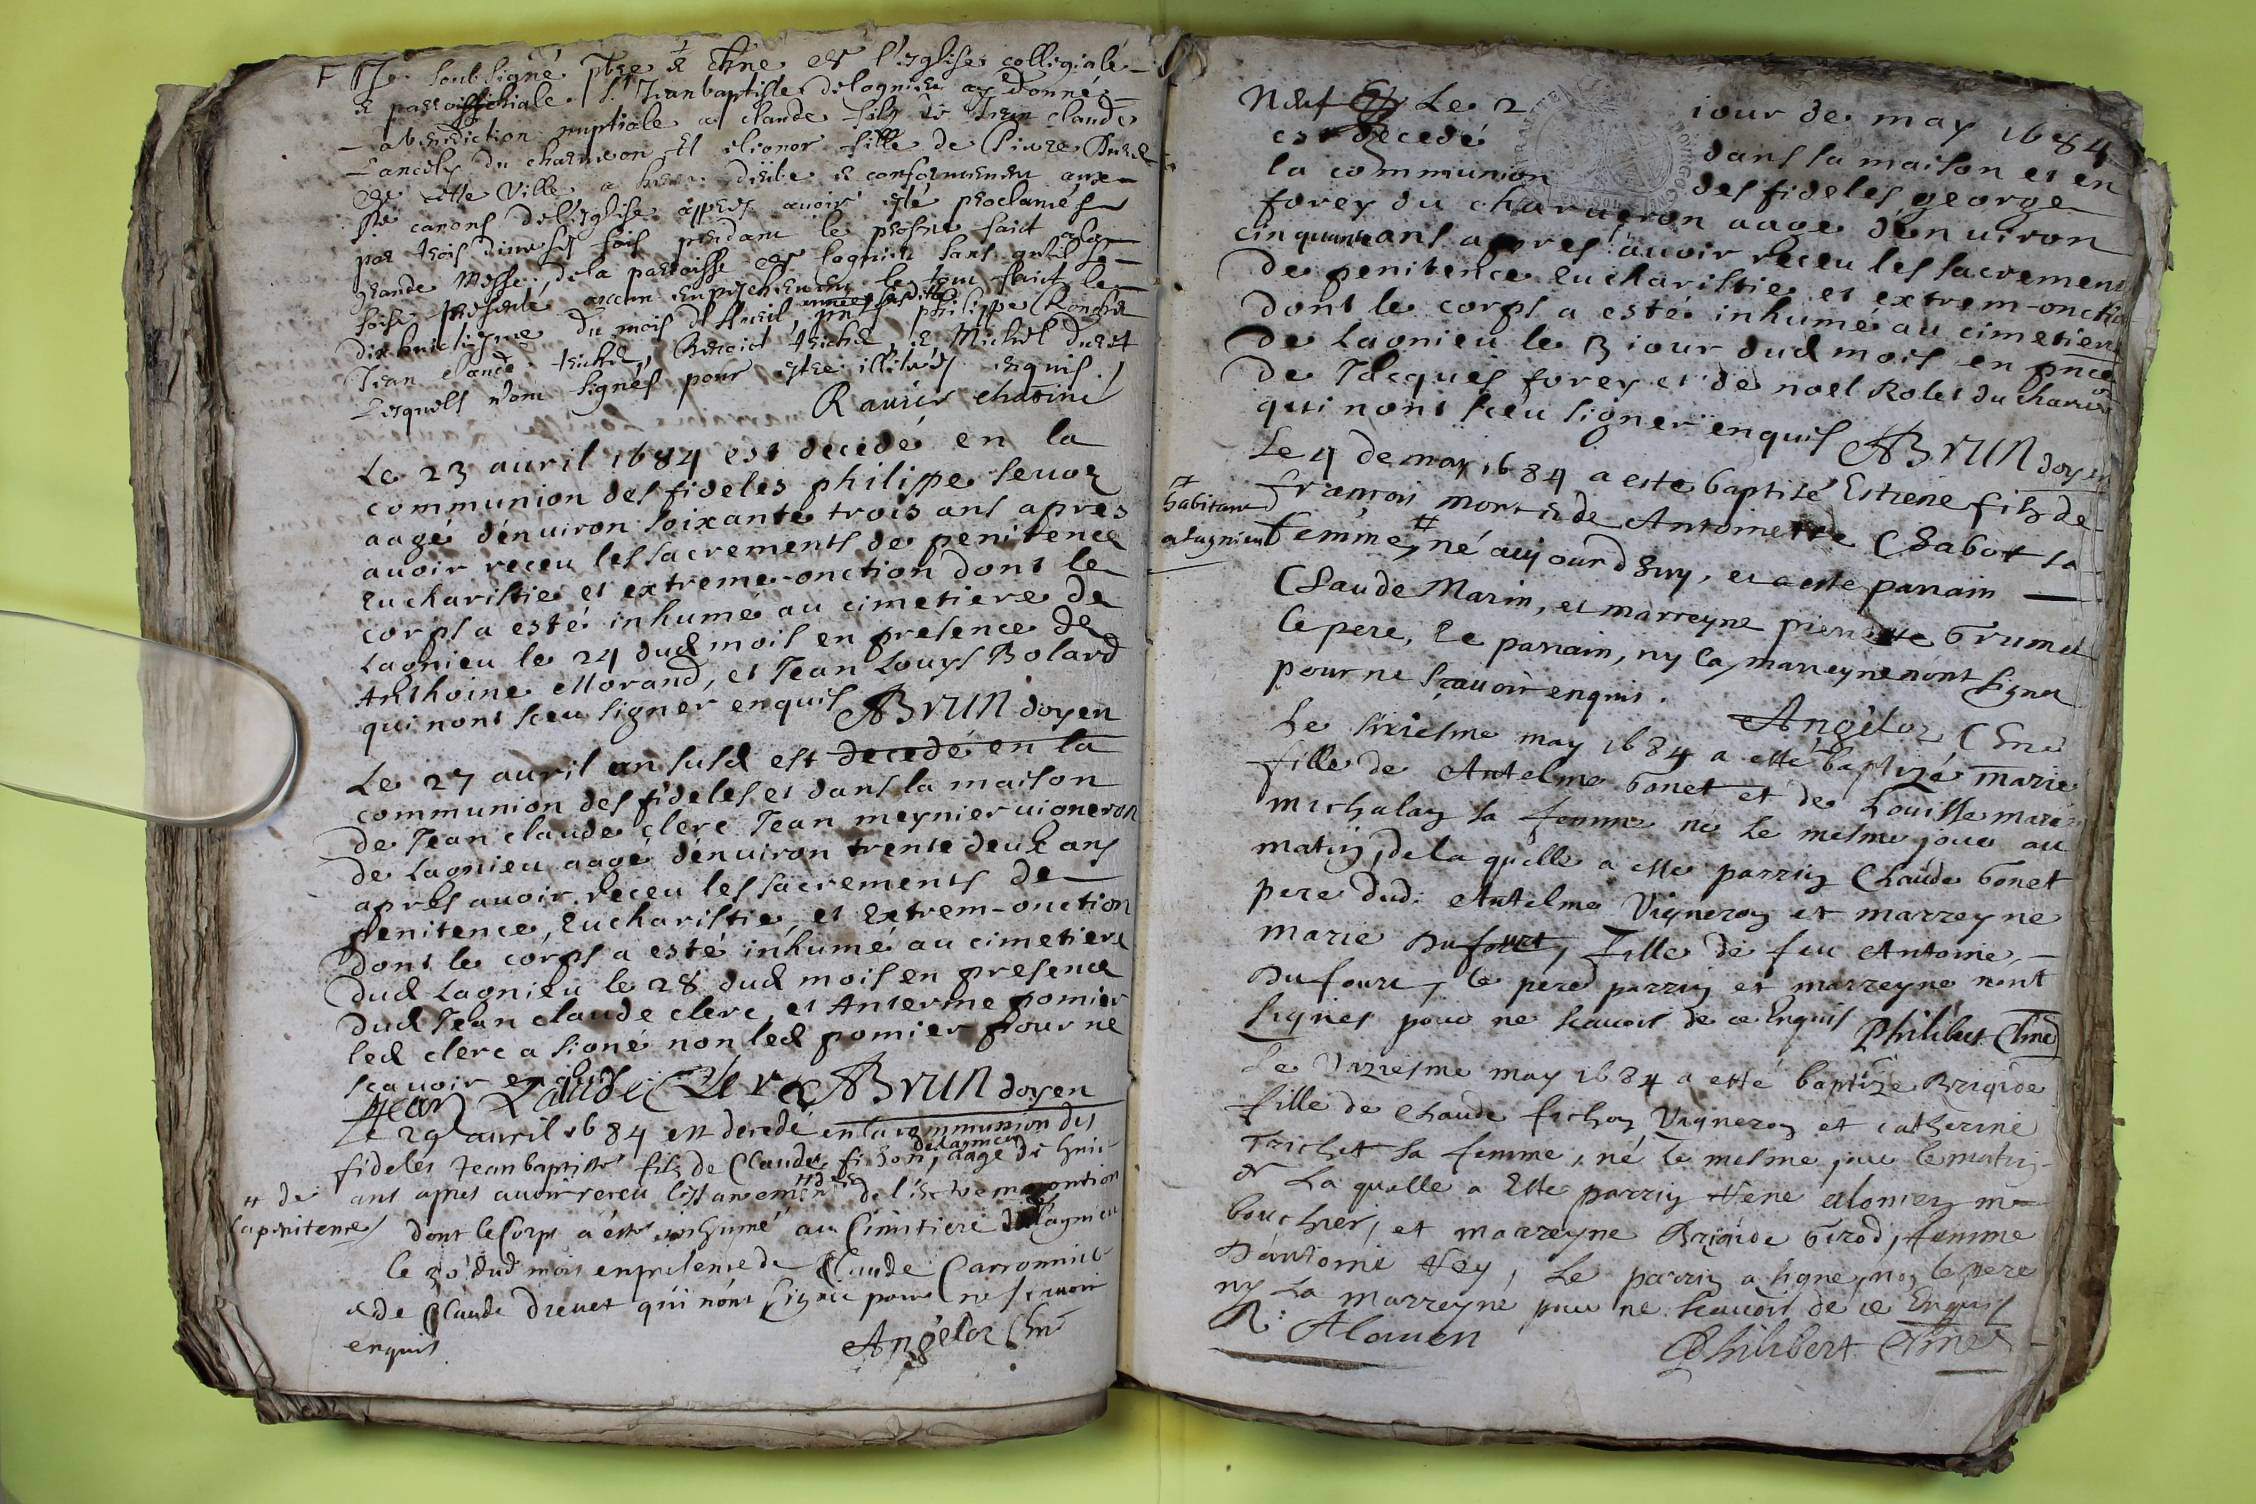 Je soubsigné ptre et chne de l'eglise collegiale
et parroischiale St Jean baptiste de lagnieu ay donné
la benediction nuptiale a claude fils de Jean claude
Lancely du charveron et elionor fille de Pierre
de cette Ville a heure et conformement aux
Sts canons de l'eglise appres avoir esté proclamés
par trois divers fois pendant le prosne faict a la
grande Messe de la parroisse de lagnieu sans qu'il se
soit presenté aucun enpechement le tout faict le
dixhuictiesme du mois d'Auril annee susditte philippe
Jean claude trichet, Benoict trichet, et Michel
Lesquels n'ont signés pour estre illiterés enquis
Ravier chanoine
Le 23 auril 1684 est decedé en la
communion des fideles philippe seuoz
aagé d'enuiron soixante trois ans apres
auoir receu les sacrements de penitence
Eucharistie et extreme-onction dont le
corps a esté inhumé au cimetiere de
Lagnieu le 24 dud mois en presence de
Anthoine Morand, et Jean Louys Bolard
qui nont sceu signer enquis ABrun doyen
Le 27 auril an susd est decedé en la
communion des fideles et dans la maison
de Jean claude clerc Jean meynier uigneron
de Lagnieu aagé d'enuiron trente deux ans
apres auoir receu les sacrements de
penitence, Eucharistie, et Extrem-onction
dont le corps a esté inhumé au cimetiere
dud Lagnieu le 28 dud mois en presence
dud Jean claude clerc, et Anterme pomier
led clerc a signé non led pomier pour ne
scauoir enquis
Jean Claude Clerc ABrun doyen
Le 29 auril 1684 est decedé en la communion des
fideles Jean baptiste fils de Claude fichon, de lagnieu aagé de huit
ans apres auoir receu les sacrements # de l'extreme onction
# de
la penitence
dont le Corps a esté inhumé au Cimitiere de lagnieu
le 30 dud mois en presence de Claude Carronnier
et de Claude Dreuet qui n'ont signé pour ne scauoir
enquis
Angeloz Chne
Neuf Le 2 iour de may 1684
est decedé dans sa maison et en
la communion des fideles george
forey du charueron aagé d'enuiron
cinquante ans apres auoir receu les sacrements
de penitence eucharistie et extrem-onction
dont le corps a esté inhumé au cimetiere
de Lagnieu le 3 iour dud mois en pnce
de Jacques forey et de noel Rolet du charueron
qui nont sceu signer enquis ABrun doyen
Le 4 de may 1684 a esté baptisé Estiene fils de
françois mortet de Antoinette Chabot sa
# habitant
a lagnieu
femme, # né aujourdhuy, et a esté parrain
Claude Marin, et marreyne pierrette Grumet
le pere, le parrain, ny la marreyne n'ont signer
pour ne sçauoir enquis.
Angeloz Chne
Le sixiesme may 1684 a esté baptizé marie
fille de Antelme Gonet et de Louisse marie
michalaz sa femme né le mesme jour au
matin, de la quelle a esté parrin Claude Gonet
pere dud. Antelme Vigneron et marreyne
marie Dufourt, fille de feu Antoine
Dufourt, le pere parrin et marreyne nont
signés pour ne scauoir de ce Enquis Philibert Chne
Le Vnziesme may 1684 a esté baptizé Brigide
fille de Claude fichon Vigneron et catherine
Trichet sa femme, né le mesme jour le matin
de La quelle a Esté parrin Rene alonien me
boucher, et marreyne Brigide Girod, femme
D'antoine Rey, Le parrin a signé non le pere
ny La marreyne pour ne scauoir de ce Enquis
R: Alouen
Philibert Chne